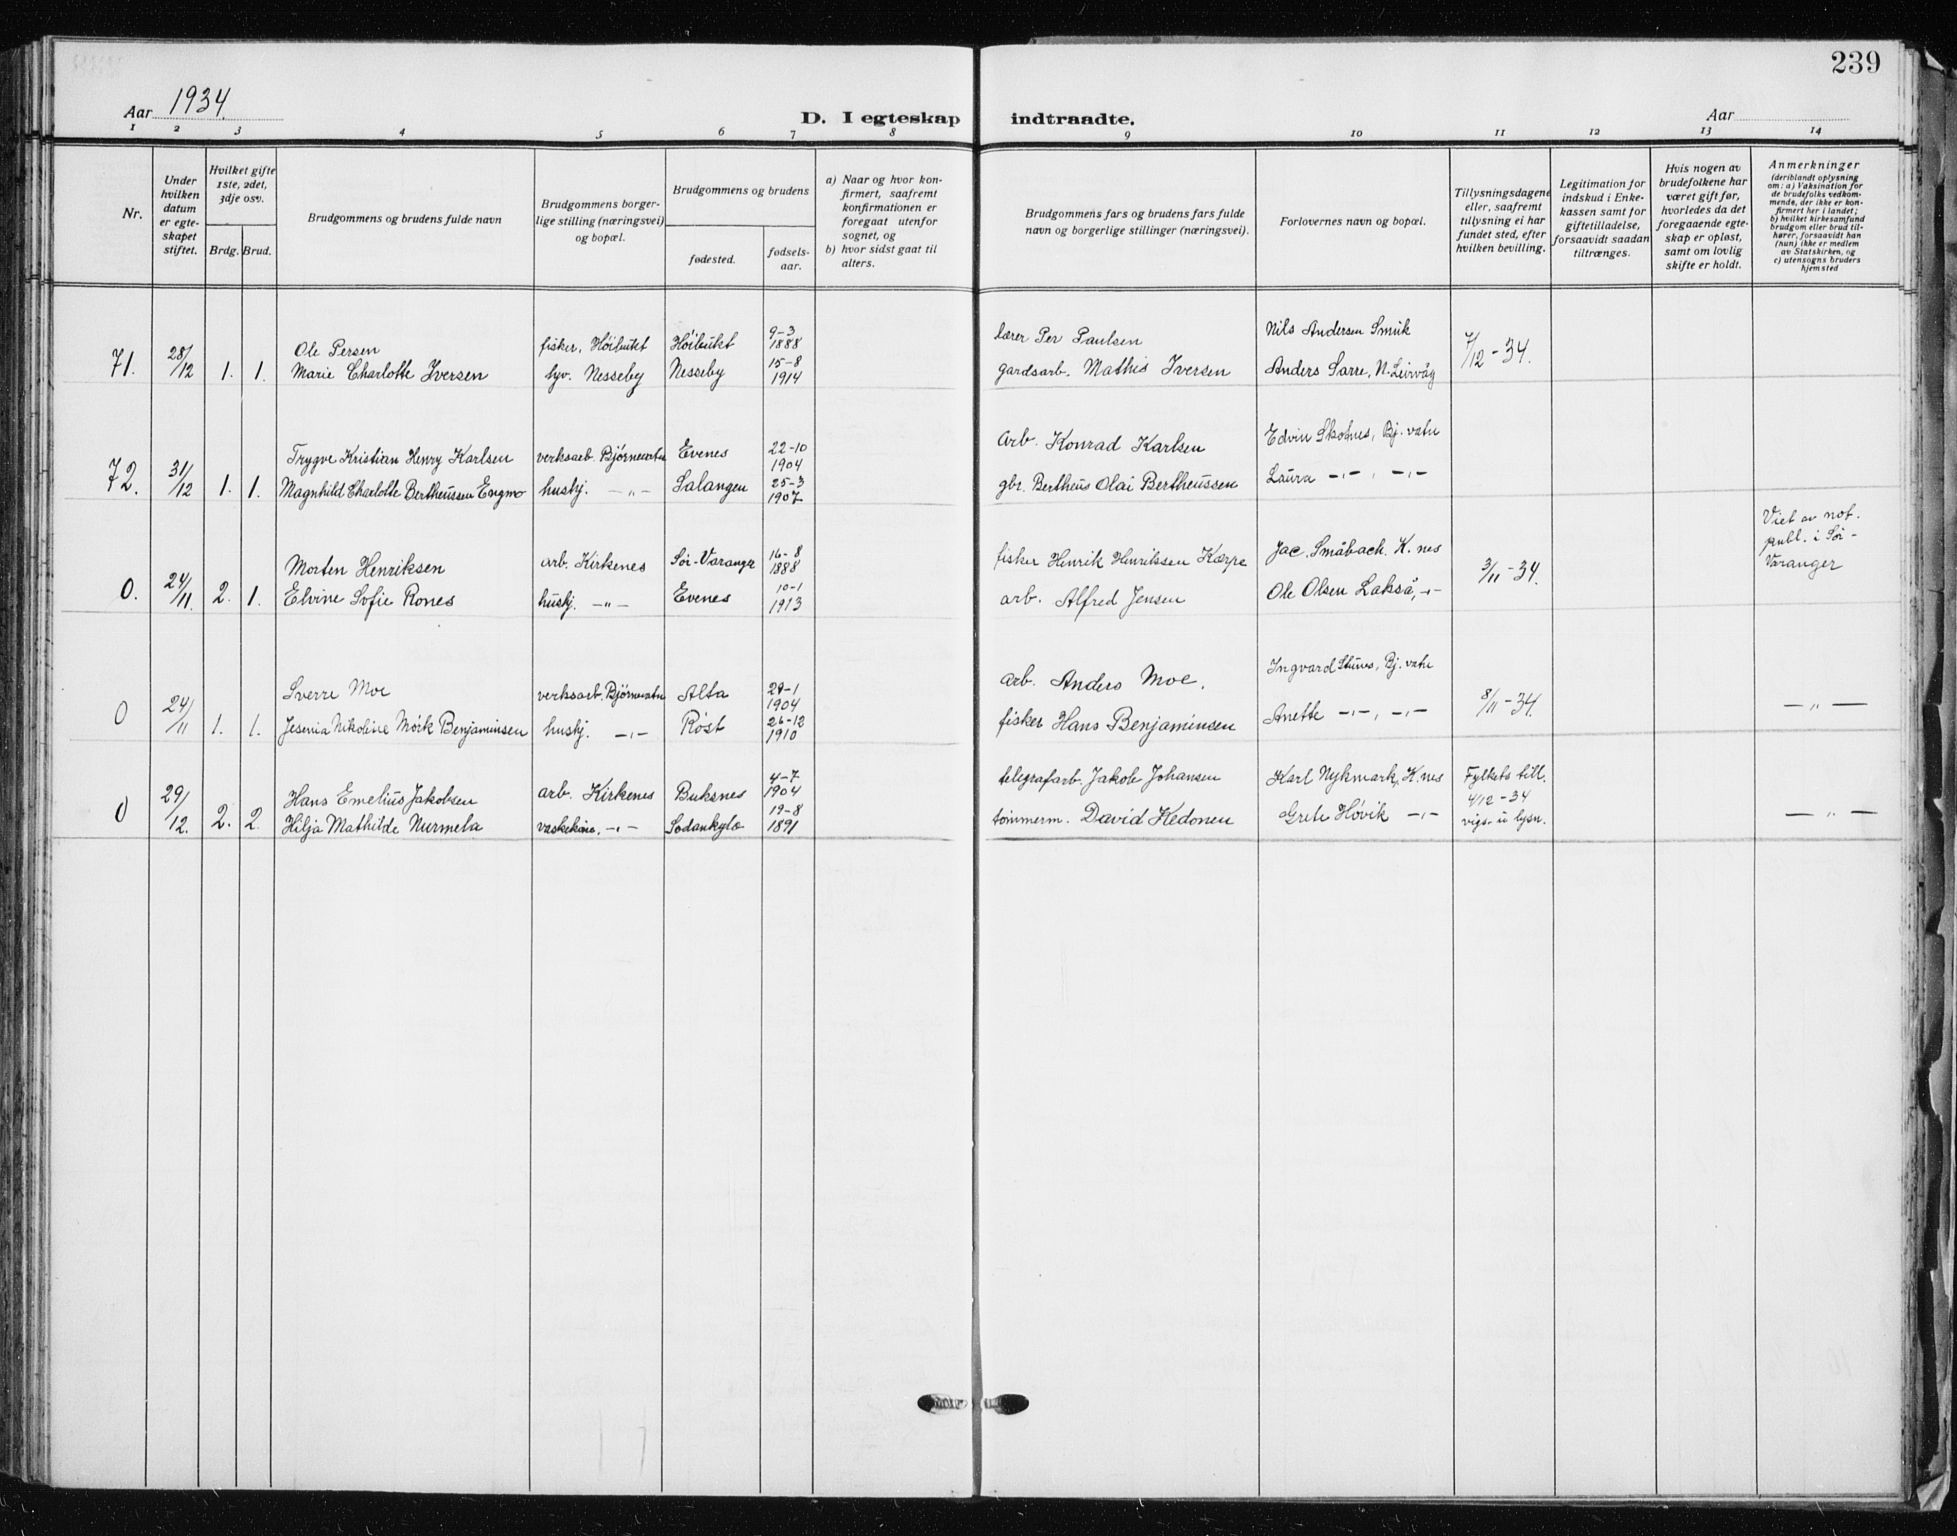 239
Aar 1934.
D. I egteskap indtraadte.
Aar
1 2 3 4 5 6 7 8 9 10 11 12 13 14
Nr.
Under
hvilken
datum
er egte-
skapet
stiftet.
Hvilket gifte
1ste, 2det,
3dje osv.
Brdg. Brud.
Brudgommens og brudens fulde navn
Brudgommens borger-
lige stilling (næringsvei)
og bopæl.
Brudgommens og brudens
fødested.
fødsels-
aar.
a) Naar og hvor kon-
firmert, saafremt
konfirmationen er
foregaat utenfor
sognet, og
b) hvor sidst gaat til
alters.
Brudgommens fars og brudens fars fulde
navn og borgerlige stillinger (næringsvei).
Forlovernes navn og bopæl.
Tillysningsdagene
eller, saafremt
tillysning ei har
fundet sted, efter
hvilken bevilling.
Legitimation for
indskud i Enke-
kassen samt for
giftetilladelse,
forsaavidt saadan
tiltrænges.
Hvis nogen av
brudefolkene har
været gift før,
hvorledes da det
foregaaende egte-
skap er opløst,
samt om lovlig
skifte er holdt.
Anmerkninger
(deriblandt oplysning
om: a) Vaksination for
de brudefolks vedkom-
mende, der ikke er kon-
firmert her i landet;
b) hvilket kirkesamfund
brudgom eller brud til-
hører, forsaavidt han
(hun) ikke er medlem
av Statskirken, og
c) utensogns bruders
hjemsted
71. 28/12 1. 1.
Ole Persen fisker, Høibukt Høibukt 9-3 1888 lærer Per Paulsen Nils Andersen Smuk 7/12-34.
Marie Charlotte Iversen syv. Nesseby Nesseby 15-8 1914 gardsarb. Mathis Iversen Anders Sarre, N. Leirvåg
72. 31/12 1. 1.
Trygve Kristian Henry Karlsen verksarb. Bjørnevatn Evenes 22-10 1904 Arb. Konrad Karlsen Edvin Skolnes, Bj.vatn
Magnhild Charlotte Bertheussen Engmo hushj. -"- Salangen 25-3 1907 gbr. Bertheus Olai Bertheussen Laura -"-, -"-
0. 24/11. 2. 1.
Morten Henriksen arb. Kirkenes Sør-Varanger 16-8 1888 fisker Henrik Henrikssen Karpe Jac. Småbach, K.nes 3/11-34.
Viet av not.
publ. i Sør-
Varanger
Elvine Sofie Rones hushj. -"- Evenes 10-1 1913 arb. Alfred Jensen Ole Olsen Lakså, -"-
0 24/11 1. 1.
Sverre Moe verksarb. Bjørnevatn Alta 29-1 1904 arb. Anders Moe. Ingvard Stuvs, Bj.vatn 8/11-34. -"-
Jesenia Nikoline Mörk Benjaminsen hushj. -"- Røst 26-12 1910 fisker Hans Benjaminsen Anette -"-, -"-
0 29/12. 2. 2.
Hans Emelius Jakobsen arb. Kirkenes Buksnes 4-7 1904 telegrafarb. Jakob Johansen Karl Nykmark, K.nes Fylkets till. 4/12-34 vigs. u lysn. -"-
Hilja Mathilde Nurmela vaskekone, -"- Sodankylæ 19-8 1891 tømmerm. David Kedonen Grete Høvik -"-